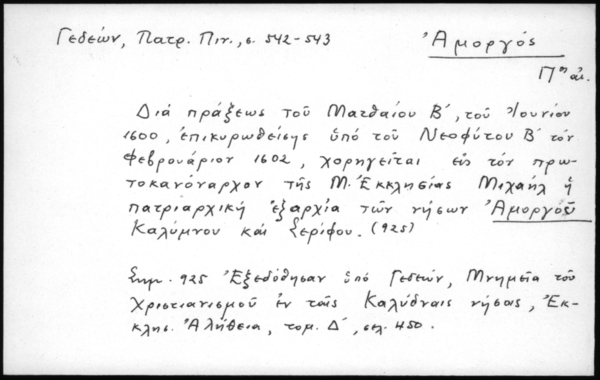 Γεδεών, Πατρ. Πιν., σ. 542-543
Ἀμοργός
Πηαί.
Διά πράξεως τοῦ Ματθαίου Β΄, τοῦ Ἰουνίου
1600, ἐπικυρωθείσης ὑπό τοῦ Νεοφύτου Β΄ τόν
Φεβρουάριον 1602, χορηγεῖται εἰς τόν πρω-
τοκανόναρχον τῆς Μ. Ἐκκλησίας Μιχαήλ ἡ
πατριαρχική ἐξαρχία τῶν νήσων Ἀμοργοῦ
Καλύμνου καί Σερίφου. (925)
Σημ. 925 Ἐξεδόθησαν ὑπό Γεδεών, Μνημεῖα τοῦ
Χριστιανισμοῦ ἐν ταῖς Καλύδναις νήσοις, Ἐκ-
κλησ. Ἀλήθεια, τομ. Δ΄, σελ. 450.